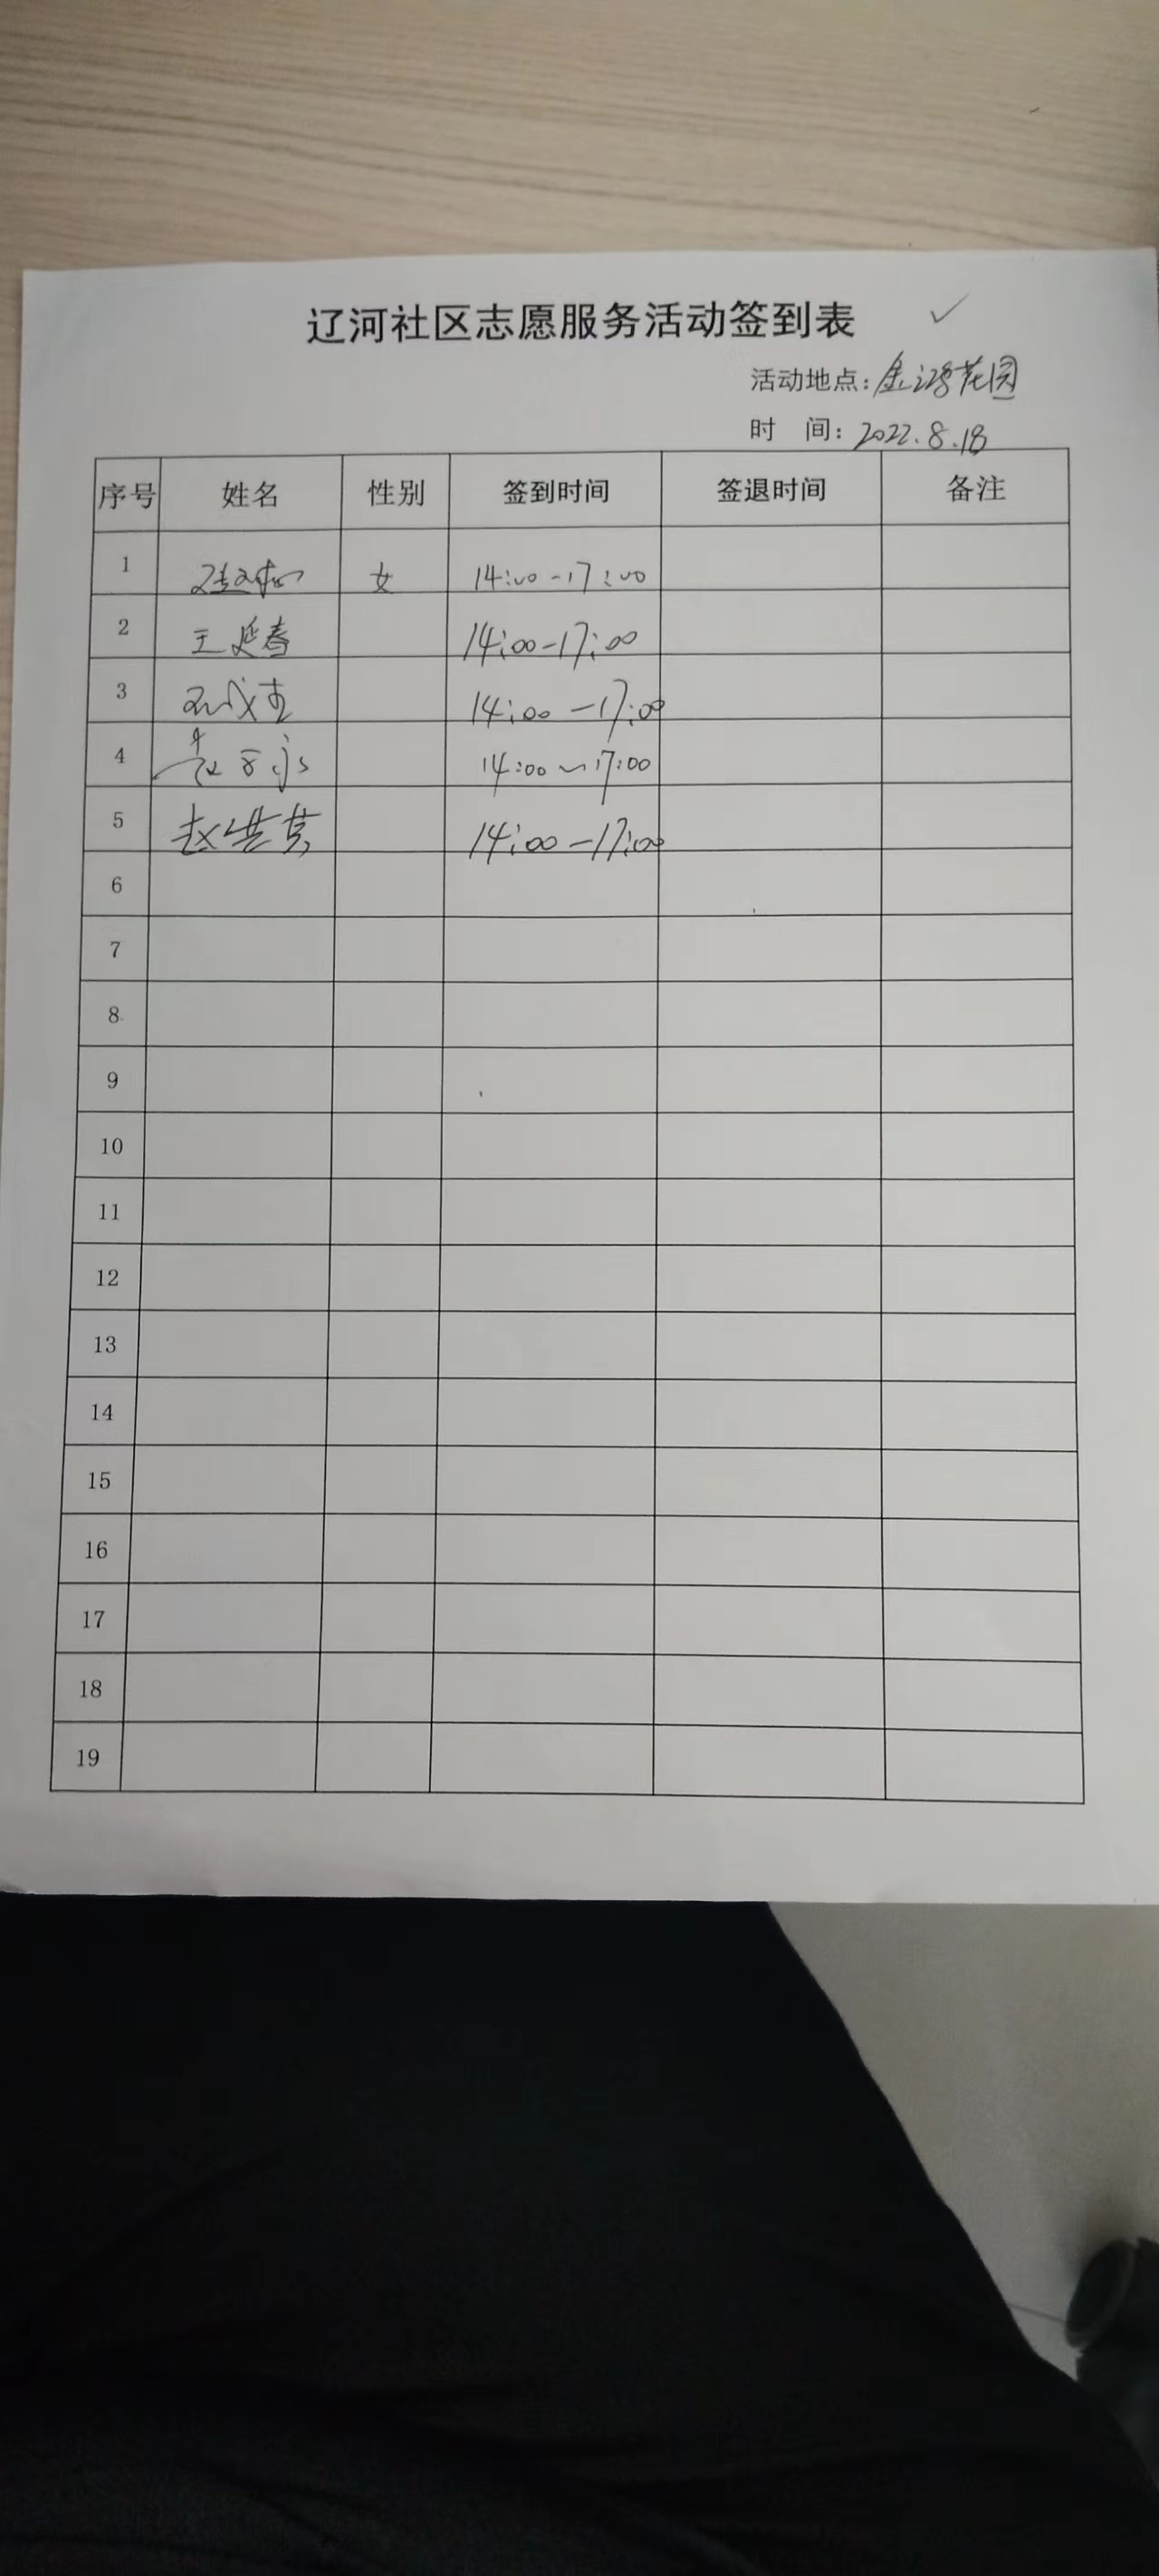 辽河社区志愿服务活动签到表
活动地点：金鸿花园
时 间：2022.8.18
序号 姓名 性别 签到时间 签退时间 备注
1 女 14:00-17:00
2 王延春 14:00-17:00
3 14:00-17:00
4 14:00~17:00
5 赵洪芬 14:00-17:00
6
7
8
9
10
11
12
13
14
15
16
17
18
19